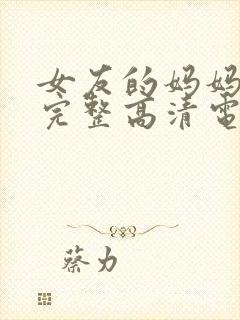 女友的妈妈
完整高清电
蔡力